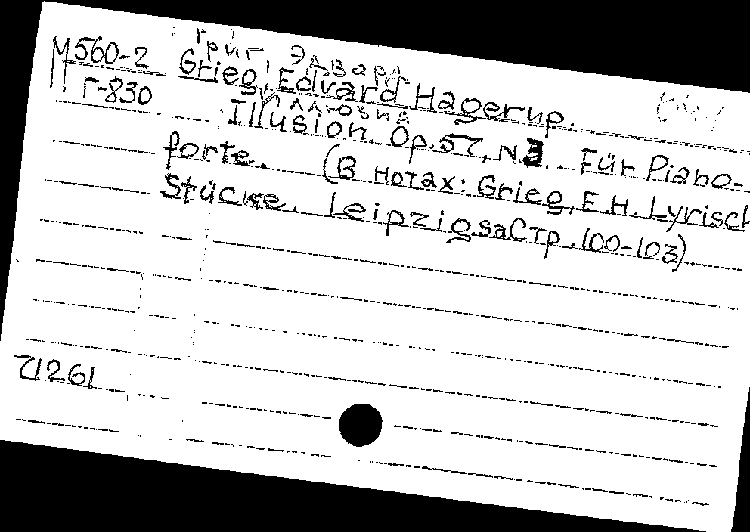 Григ Эдвард
М560-2 Grieg, Edvard Hagerup.
Г-830
Иллюзия
Illusion. Op.57, N.3. Für Piano-
forte. (В нотах: Grieg, E.H. Lyrisch
Stücke. Leipzig sa Стр.100-103)
71261